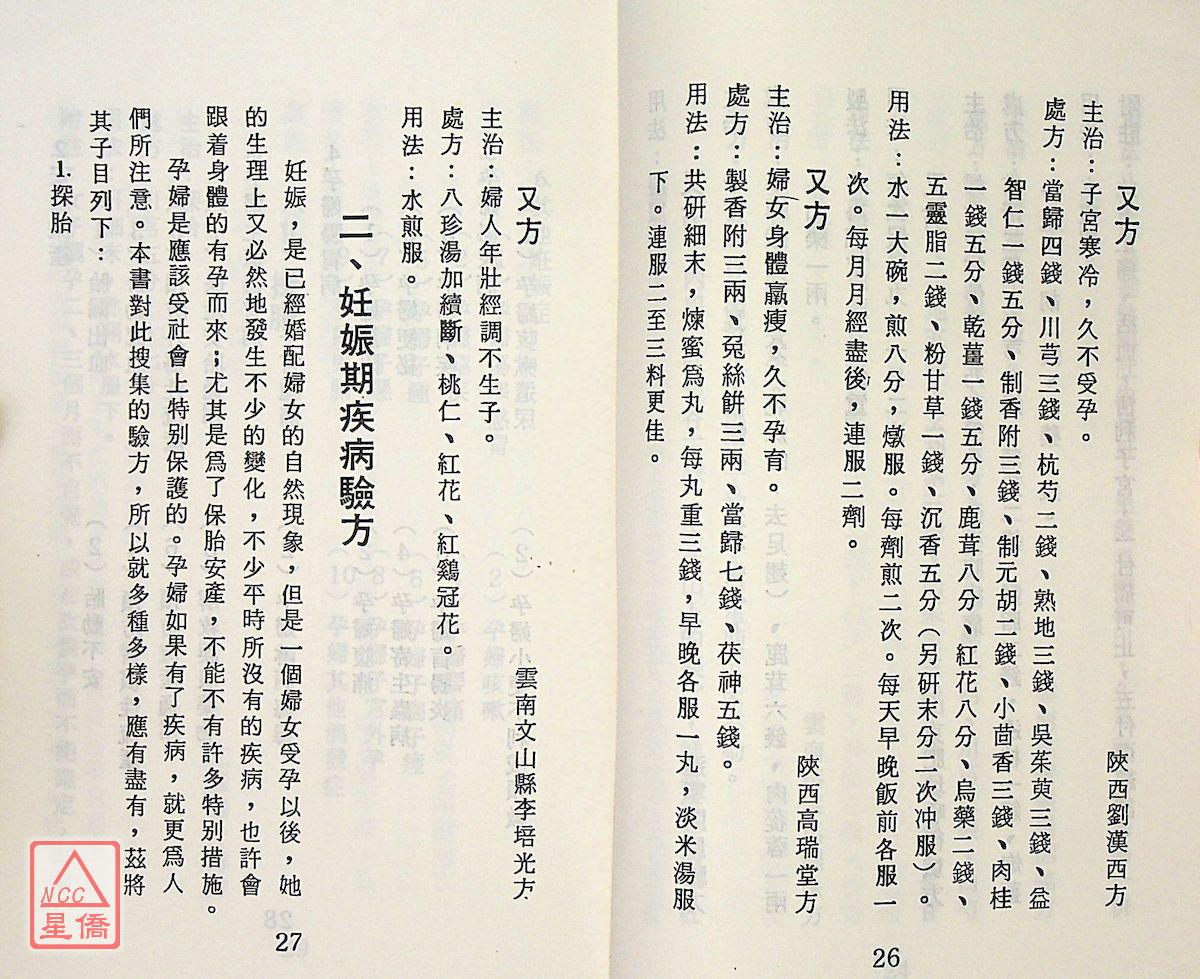 又方　　陝西劉漢西方
主治：子宮寒冷，久不受孕。
處方：當歸四錢、川芎三錢、杭芍二錢、熟地三錢、吳茱萸三錢、益
智仁一錢五分、制香附三錢、制元胡二錢、小茴香三錢、肉桂
一錢五分、乾薑一錢五分、鹿茸八分、紅花八分、烏藥二錢、
五靈脂二錢、粉甘草一錢、沉香五分（另研末分二次冲服）。
用法：水一大碗，煎八分，燉服。每劑煎二次。每天早晚飯前各服一
次。每月月經盡後，連服二劑。
又方　　陝西高瑞堂方
主治：婦女身體羸瘦，久不孕育。
處方：製香附三兩、兔絲餅三兩、當歸七錢、茯神五錢。
用法：共研細末，煉蜜爲丸，每丸重三錢，早晚各服一丸，淡米湯服
下。連服二至三料更佳。
26
又方　　雲南文山縣李培光方
主治：婦人年壯經調不生子。
處方：八珍湯加續斷、桃仁、紅花、紅鷄冠花。
用法：水煎服。
二、妊娠期疾病驗方
妊娠，是已經婚配婦女的自然現象，但是一個婦女受孕以後，她
的生理上又必然地發生不少的變化，不少平時所沒有的疾病，也許會
跟着身體的有孕而來；尤其是爲了保胎安產，不能不有許多特别措施。
孕婦是應該受社會上特别保護的。孕婦如果有了疾病，就更爲人
們所注意。本書對此搜集的驗方，所以就多種多樣，應有盡有，茲將
其子目列下：
1.探胎
27
NCC
星僑